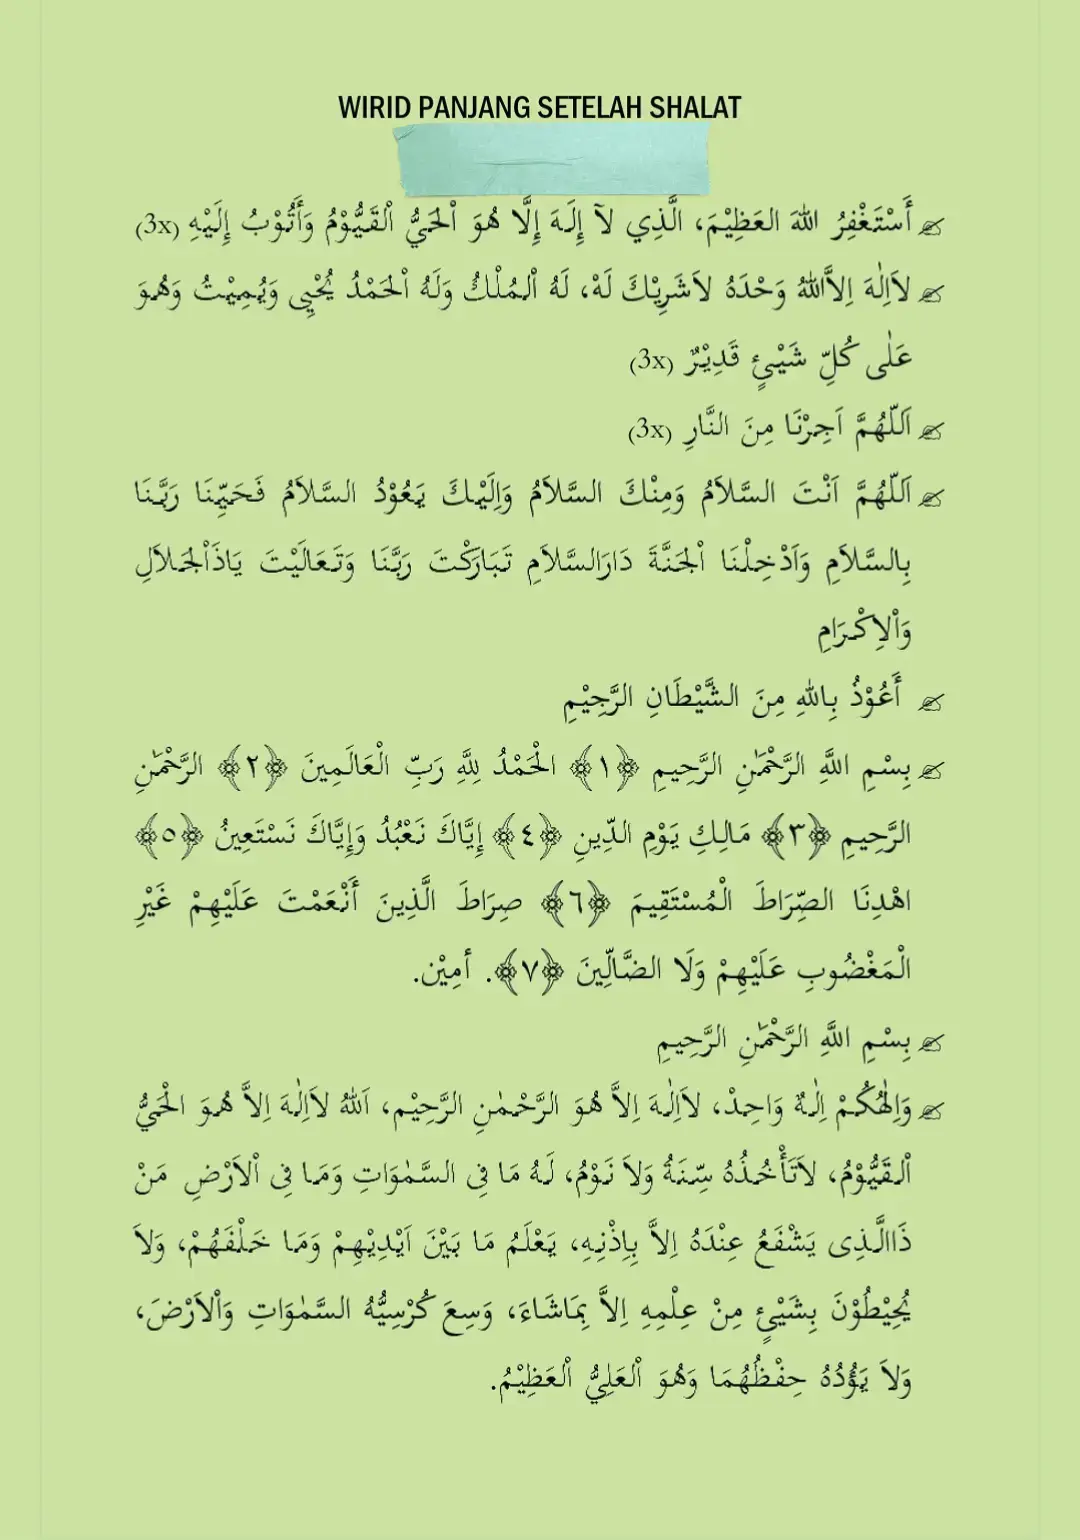 WIRID PANJANG SETELAH SHALAT
أَسْتَغْفِرُ اللهَ العَظِيْمَ، الَّذِي لآ إِلَهَ إِلَّا هُوَ اْلحَيُّ اْلقَيُّوْمُ وَأَتُوْبُ إِلَيْهِ (3x)
لاَاِلٰهَ اِلاَّاللهُ وَحْدَهُ لاَشَرِيْكَ لَهْ، لَهُ اْلمُلْكُ وَلَهُ اْلحَمْدُ يُحْيِى وَيُمِيْتُ وَهُوَ
عَلٰى كُلِّ شَيْئٍ قَدِيْرٌ (3x)
اَللّٰهُمَّ اَجِرْنَا مِنَ النَّارِ (3x)
اَللّٰهُمَّ اَنْتَ السَّلاَمُ وَمِنْكَ السَّلاَمُ وَاِلَيْكَ يَعُوْدُ السَّلاَمُ فَحَيِّنَا رَبَّنَا
بِالسَّلاَمِ وَاَدْخِلْنَا اْلجَنَّةَ دَارَالسَّلاَمِ تَبَارَكْتَ رَبَّنَا وَتَعَالَيْتَ يَاذَاْلجَلاَلِ
وَاْلاِكْرَامِ
أَعُوْذُ بِاللهِ مِنَ الشَّيْطَانِ الرَّجِيْمِ
بِسْمِ اللَّهِ الرَّحْمَٰنِ الرَّحِيمِ ﴿١﴾ الْحَمْدُ لِلَّهِ رَبِّ الْعَالَمِينَ ﴿٢﴾ الرَّحْمَٰنِ
الرَّحِيمِ ﴿٣﴾ مَالِكِ يَوْمِ الدِّينِ ﴿٤﴾ إِيَّاكَ نَعْبُدُ وَإِيَّاكَ نَسْتَعِينُ ﴿٥﴾
اهْدِنَا الصِّرَاطَ الْمُسْتَقِيمَ ﴿٦﴾ صِرَاطَ الَّذِينَ أَنْعَمْتَ عَلَيْهِمْ غَيْرِ
الْمَغْضُوبِ عَلَيْهِمْ وَلَا الضَّالِّينَ ﴿٧﴾. أمِيْن.
بِسْمِ اللَّهِ الرَّحْمَٰنِ الرَّحِيمِ
وَاِلٰهُكُمْ اِلٰهٌ وَاحِدْ، لاَاِلٰهَ اِلاَّ هُوَ الرَّحْمٰنِ الرَّحِيْمِ، اَللهُ لاَاِلٰهَ اِلاَّ هُوَ الْحَيُّ
اْلقَيُّوْمُ، لاَتَأْخُذُهُ سِّنَةُ وَلاَ نَوْمُ، لَهُ مَا فِى السَّمٰوَاتِ وَمَا فِى اْلاَرْضِ مَنْ
ذَاالَّذِى يَشْفَعُ عِنْدَهُ اِلاَّ بِاِذْنِهِ، يَعْلَمُ مَا بَيْنَ اَيْدِيْهِمْ وَمَا خَلْفَهُمْ، وَلاَ
يُحِيْطُوْنَ بِشَيْئٍ مِنْ عِلْمِهِ اِلاَّ بِمَاشَاءَ، وَسِعَ كُرْسِيُّهُ السَّمٰوَاتِ وَاْلاَرْضَ،
وَلاَ يَؤُدُهُ حِفْظُهُمَا وَهُوَ اْلعَلِيُّ اْلعَظِيْمُ.